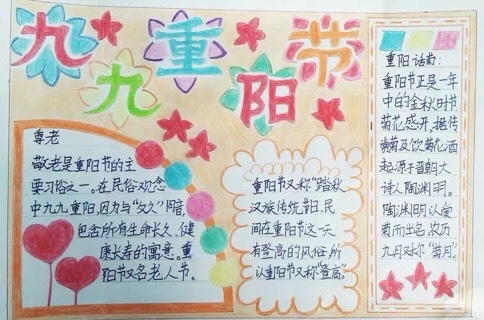 九九重阳节
尊老
敬老是重阳节的主
要习俗之一。在民俗观念
中九九重阳,因为与"久久"同音,
包含所有生命长久、健
康长寿的寓意。重
阳节又名老人节。
重阳节又称"踏秋
汉族传统节日,民
间在重阳节这一天
有登高的风俗,所
以重阳节又称"登高".
重阳话菊:
重阳节正是一年
中的金秋时节
菊花盛开,据传
赏菊及饮菊花酒
起源于晋朝大
诗人陶渊明。
陶渊明以爱
菊而出名,农历
九月又称"菊月"。